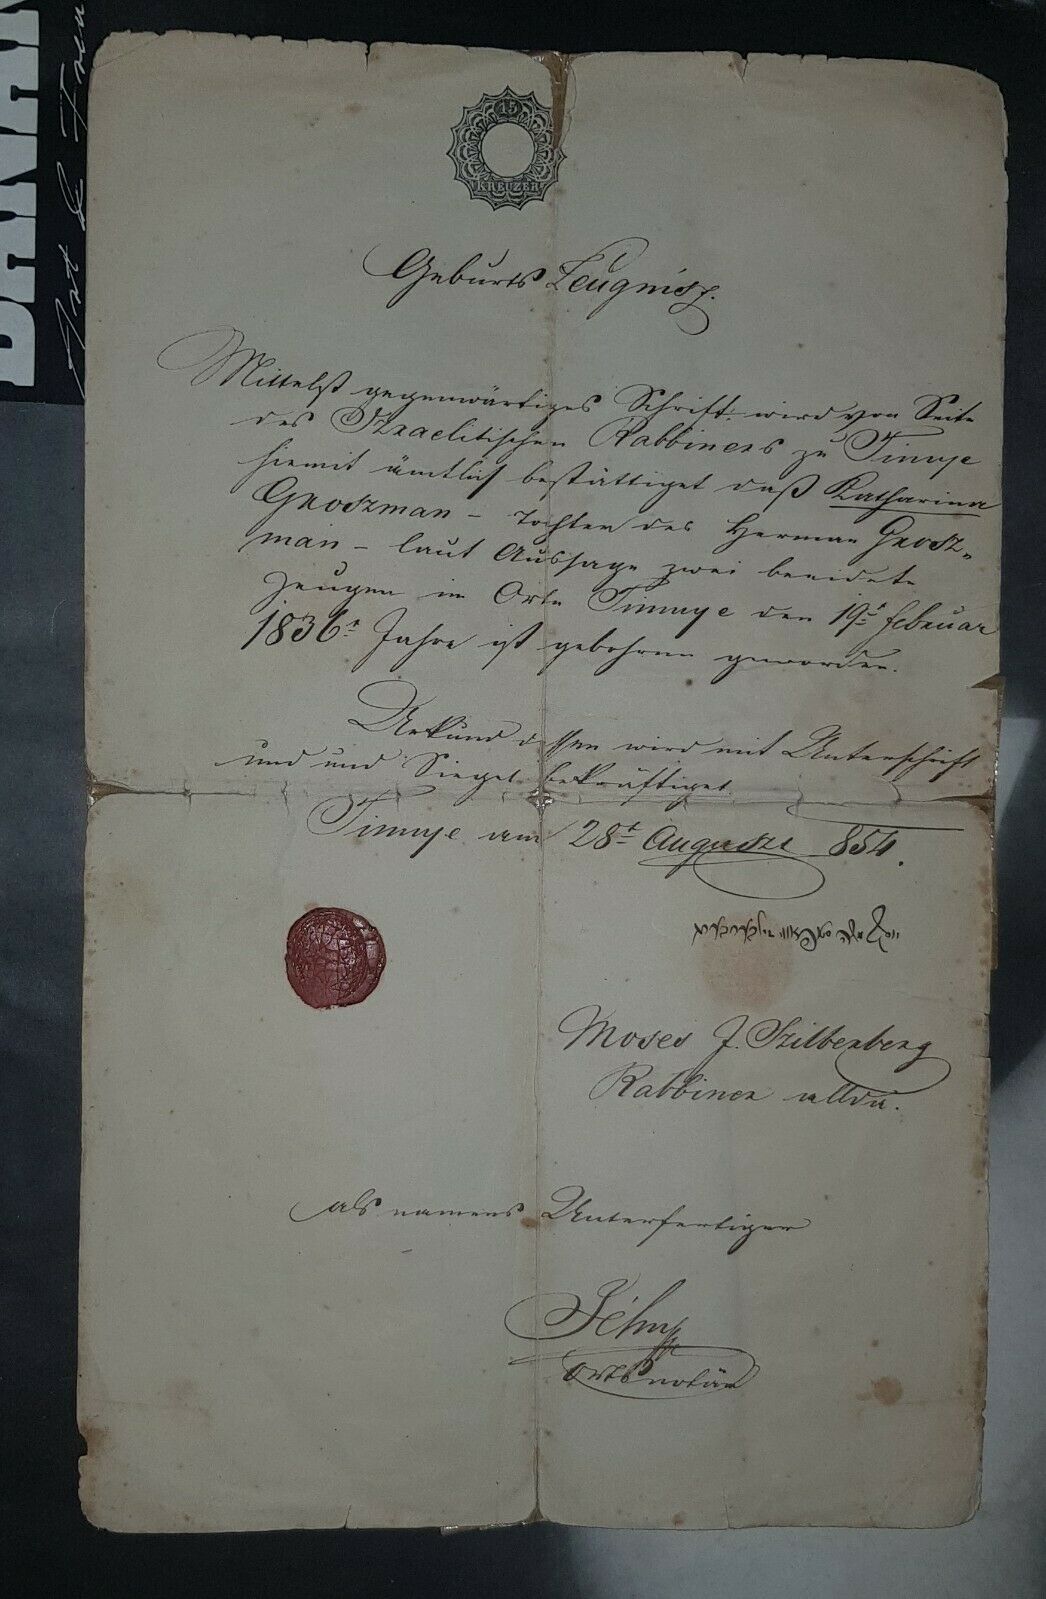 15
KREUZER
Geburts Zeugnisz.
Mittelst gegenwärtiges Schrift wird von Seite
des Iszraelitischen Rabbiners zu Tinnye
hiemit ämtlich bestättiget daß Katharina
Groszman – Tochter des Herman Grosz-
man – laut Aussage zwei beeidete
Zeugen im Orte Tinnye den 19t Februar
1836r Jahre ist gebohren geworden.
Urkund dessen wird mit Unterschrift
und und Siegel bekräftiget.
Tinnye am 28t Auguszt 854.
Moses J. Szilberberg
Rabbiner allda.
als namens Unterfertiger
Ortsnotär